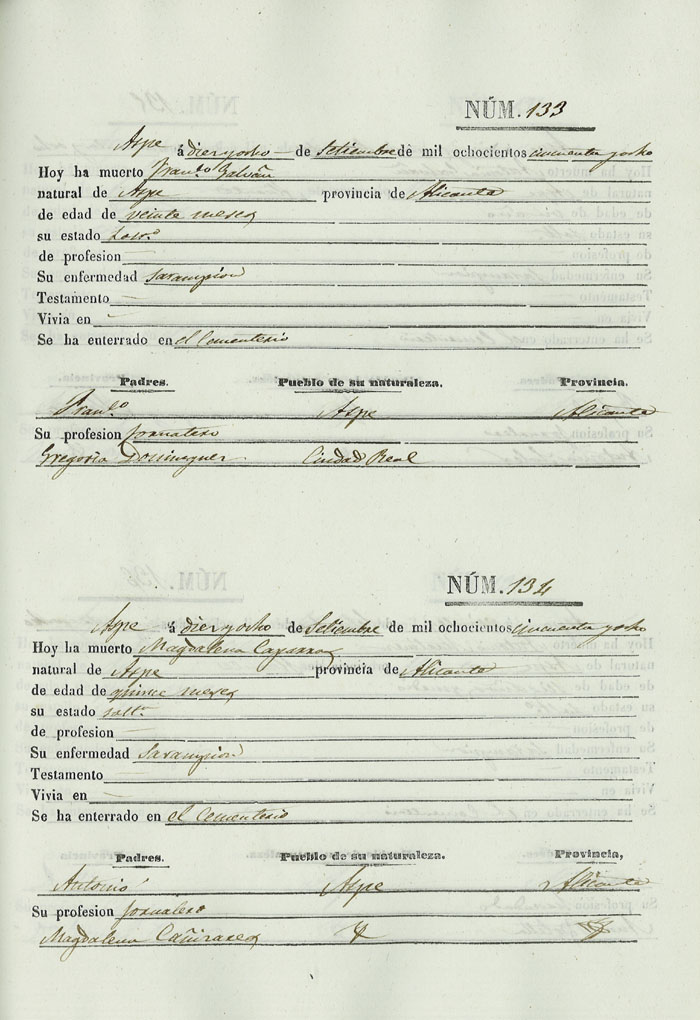 NÚM. 133
Aspe á diez y ocho de Setiembre de mil ochocientos cincuenta y ocho
Hoy ha muerto Fran.co Galván
natural de Aspe provincia de Alicante
de edad de veinte meses
su estado
de profesion
Su enfermedad Sarampion
Testamento
Vivia en
Se ha enterrado en el Cementerio
Padres. Pueblo de su naturaleza. Provincia.
Fran.co Aspe Alicante
Su profesion Jornalero
Gregoria Dominguez Ciudad Real
NÚM. 134
Aspe á diez y ocho de Setiembre de mil ochocientos cincuenta y ocho
Hoy ha muerto Magdalena
natural de Aspe provincia de Alicante
de edad de quince meses
su estado solt.a
de profesion
Su enfermedad Sarampion
Testamento
Vivia en
Se ha enterrado en el Cementerio
Padres. Pueblo de su naturaleza. Provincia,
Antonio Aspe Alicante
Su profesion Jornalero
Magdalena Cañizares